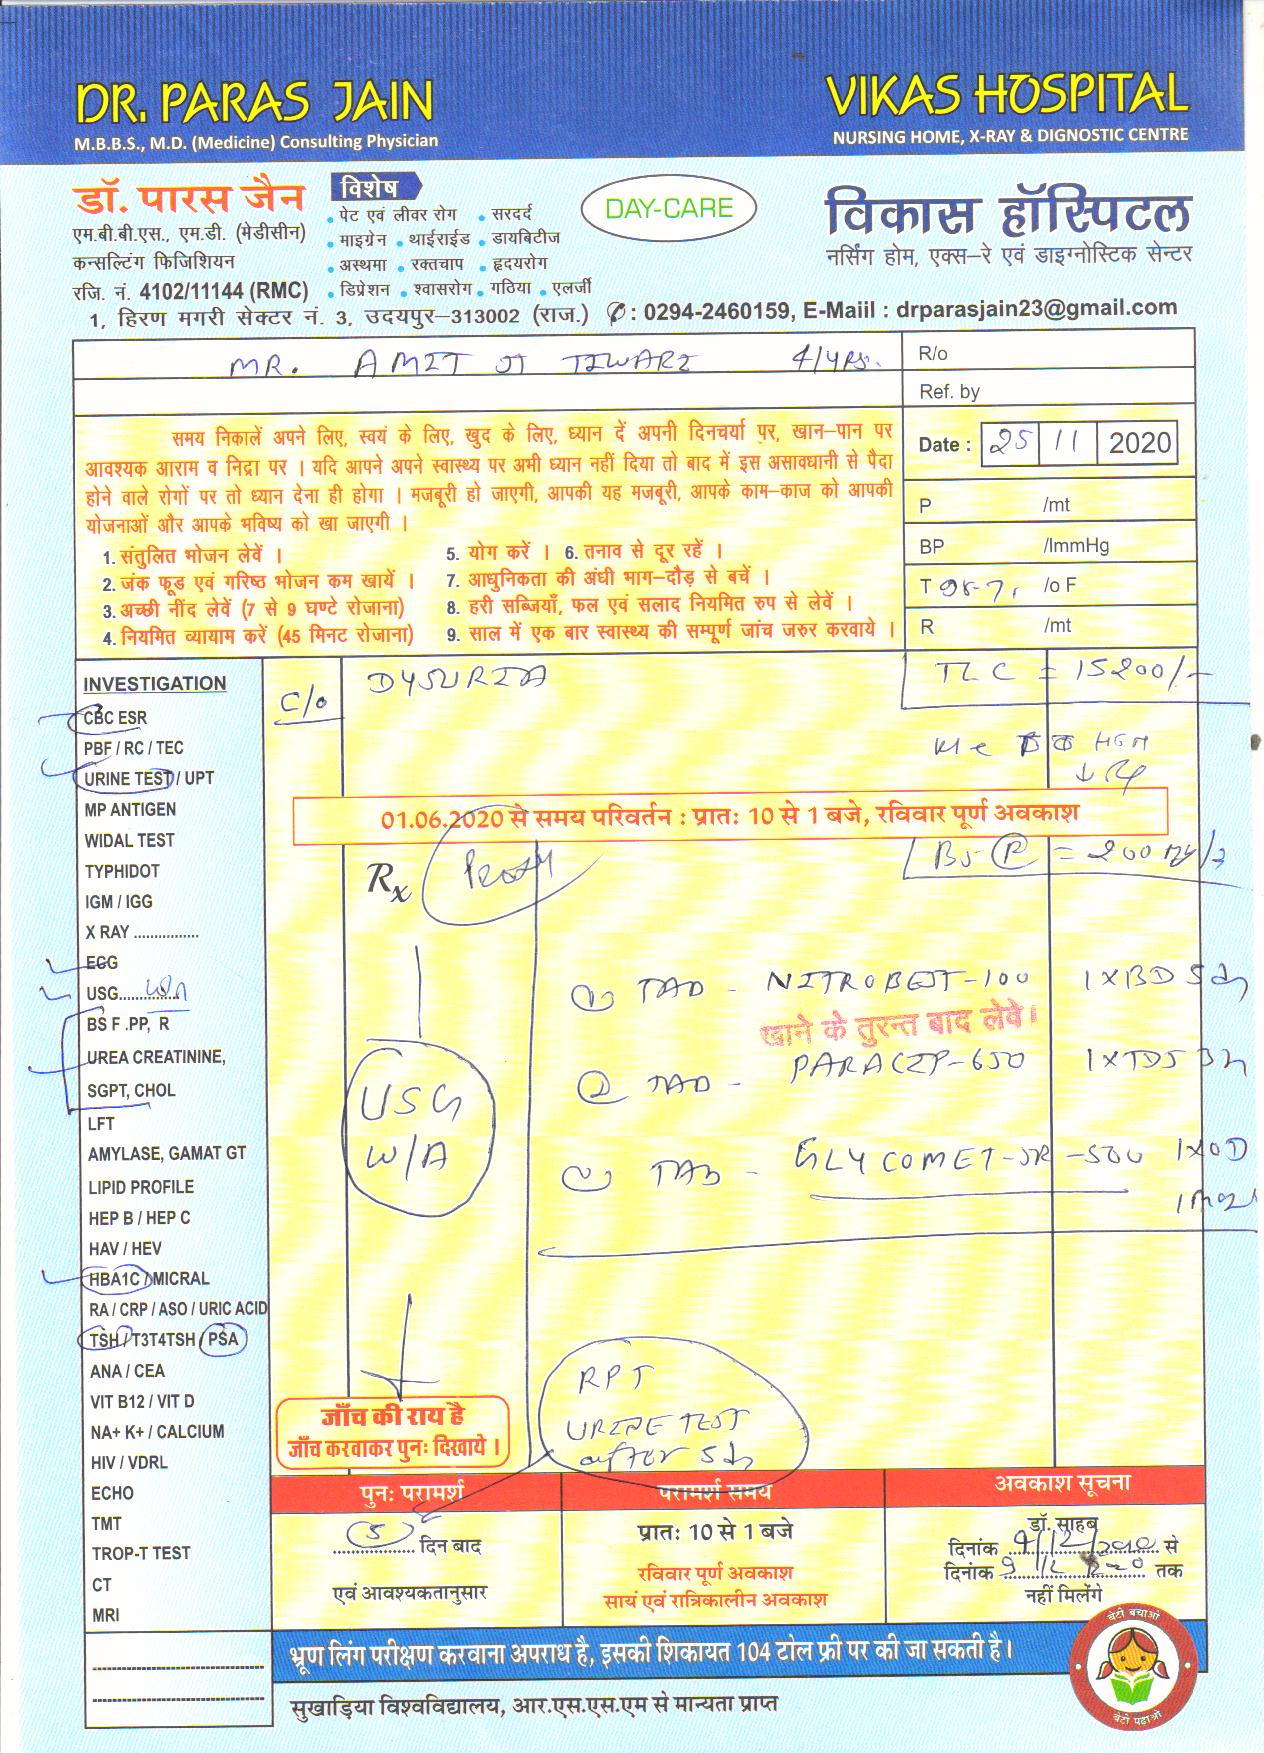 DR. PARAS JAIN
M.B.B.S., M.D. (Medicine) Consulting Physician
VIKAS HOSPITAL
NURSING HOME, X-RAY & DIGNOSTIC CENTRE
डॉ. पारस जैन
एम.बी.बी.एस., एम.डी. (मेडीसीन)
कन्सल्टिंग फिजिशियन
रजि. नं. 4102/11144 (RMC)
विशेष
• पेट एवं लीवर रोग • सरदर्द
• माइग्रेन • थाईराईड • डायबिटीज
• अस्थमा • रक्तचाप • हृदयरोग
• डिप्रेशन • श्वासरोग • गठिया • एलर्जी
DAY-CARE
विकास हॉस्पिटल
नर्सिंग होम, एक्स-रे एवं डाइग्नोस्टिक सेन्टर
1, हिरण मगरी सेक्टर नं. 3, उदयपुर-313002 (राज.) ✆: 0294-2460159, E-Maiil : drparasjain23@gmail.com
MR. AMIT JI TIWARI
R/o
Ref. by
Date : 25 11 2020
P /mt
BP /ImmHg
T 98.7 /o F
R /mt
समय निकालें अपने लिए, स्वयं के लिए, खुद के लिए, ध्यान दें अपनी दिनचर्या पर, खान-पान पर
आवश्यक आराम व निद्रा पर । यदि आपने अपने स्वास्थ्य पर अभी ध्यान नहीं दिया तो बाद में इस असावधानी से पैदा
होने वाले रोगों पर तो ध्यान देना ही होगा । मजबूरी हो जाएगी, आपकी यह मजबूरी, आपके काम-काज को आपकी
योजनाओं और आपके भविष्य को खा जाएगी ।
1. संतुलित भोजन लेवें ।
2. जंक फूड एवं गरिष्ठ भोजन कम खायें ।
3. अच्छी नींद लेवें (7 से 9 घण्टे रोजाना)
4. नियमित व्यायाम करें (45 मिनट रोजाना)
5. योग करें । 6. तनाव से दूर रहें ।
7. आधुनिकता की अंधी भाग-दौड़ से बचें ।
8. हरी सब्जियाँ, फल एवं सलाद नियमित रुप से लेवें ।
9. साल में एक बार स्वास्थ्य की सम्पूर्ण जांच जरुर करवाये ।
INVESTIGATION
CBC ESR
PBF / RC / TEC
URINE TEST / UPT
MP ANTIGEN
WIDAL TEST
TYPHIDOT
IGM / IGG
X RAY ................
ECG
USG................ W/A
BS F .PP, R
UREA CREATININE,
SGPT, CHOL
LFT
AMYLASE, GAMAT GT
LIPID PROFILE
HEP B / HEP C
HAV / HEV
HBA1C / MICRAL
RA / CRP / ASO / URIC ACID
TSH / T3T4TSH / PSA
ANA / CEA
VIT B12 / VIT D
NA+ K+ / CALCIUM
HIV / VDRL
ECHO
TMT
TROP-T TEST
CT
MRI
C/o DYSURIA
TLC = 15200/-
01.06.2020 से समय परिवर्तन : प्रातः 10 से 1 बजे, रविवार पूर्ण अवकाश
Rx
BS (R) = 200
TAB - NITROBEST-100 1XBD 5
खाने के तुरन्त बाद लेवे।
② TAB - PARACIP-650 1XTDS 3
TAB - GLYCOMET-SR-500 1XOD
USG
W/A
RPT
URINE TEST
after 5
जाँच की राय है
जाँच करवाकर पुनः दिखाये ।
पुनः परामर्श
5 दिन बाद
एवं आवश्यकतानुसार
परामर्श समय
प्रातः 10 से 1 बजे
रविवार पूर्ण अवकाश
सायं एवं रात्रिकालीन अवकाश
अवकाश सूचना
डॉ. साहब
दिनांक से
दिनांक तक
नहीं मिलेंगे
भ्रूण लिंग परीक्षण करवाना अपराध है, इसकी शिकायत 104 टोल फ्री पर की जा सकती है।
सुखाड़िया विश्वविद्यालय, आर.एस.एस.एम से मान्यता प्राप्त
बेटी बचाओ
बेटी पढ़ाओ